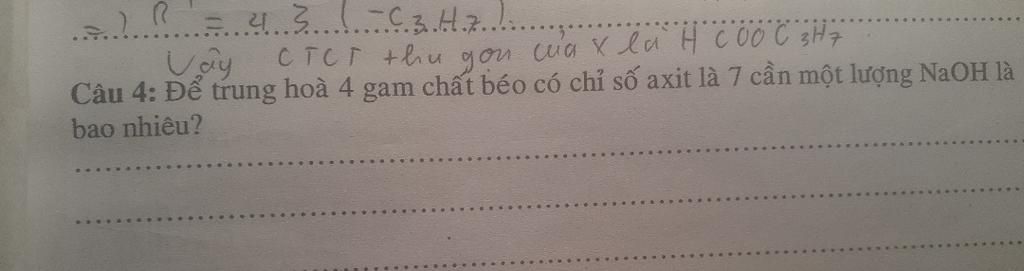 =) R' = 43 (-C3H7).
Vậy CTCT thu gọn của X là HCOOC3H7
Câu 4: Để trung hoà 4 gam chất béo có chỉ số axit là 7 cần một lượng NaOH là
bao nhiêu?